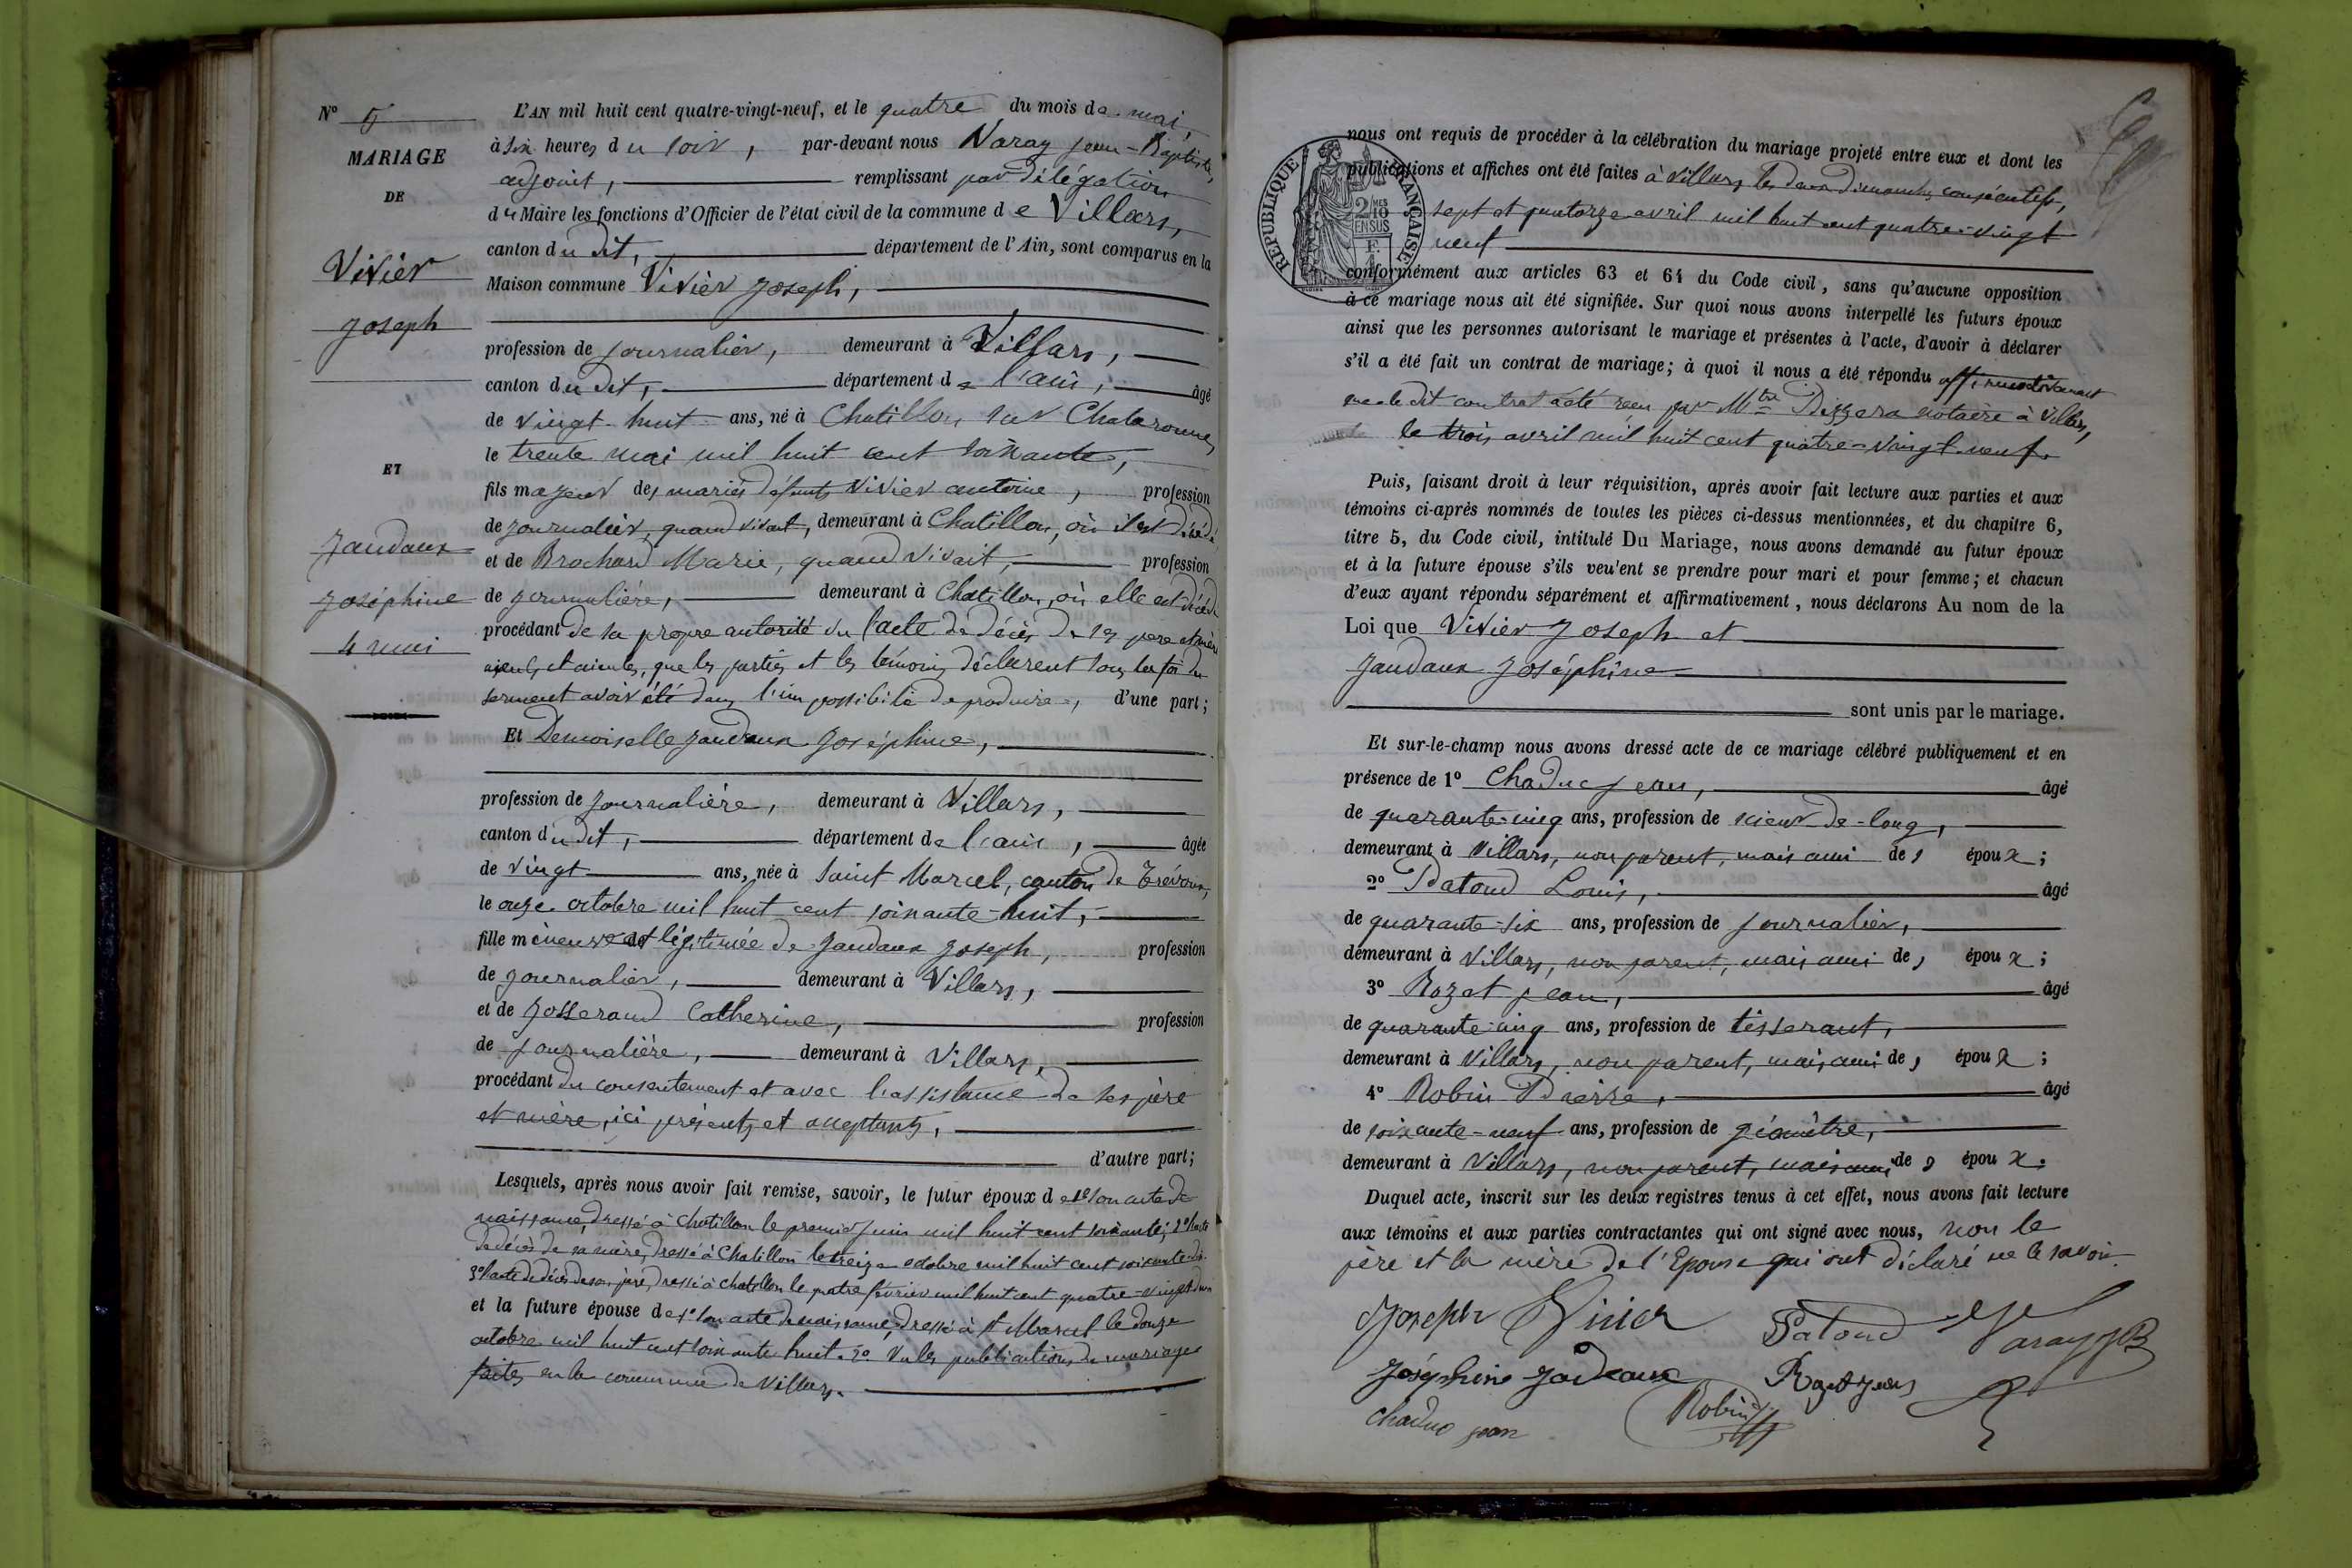 N° 5
MARIAGE
DE
Vivier
Joseph
ET
Jandaux
Joséphine
4 mai
L'AN mil huit cent quatre-vingt-neuf, et le quatre du mois de mai,
à six heures du soir, par-devant nous Naray Jean-Baptiste,
adjoint, remplissant par délégation
du Maire les fonctions d'Officier de l'état civil de la commune de Villars,
canton du dit, département de l'Ain, sont comparus en la
Maison commune Vivier Joseph,
profession de journalier, demeurant à Villars,
canton du dit, département de l'ain, âgé
de vingt-huit ans, né à Chatillon sur Chalaronne,
le trente mai mil huit cent soixante,
fils majeur des mariés défunts Vivier antoine, profession
de journalier, quand vivait, demeurant à Chatillon, où il est décédé
et de Brochard Marie, quand vivait, profession
de journalière, demeurant à Chatillon, où elle est décédée
procédant de sa propre autorité vu l'acte de décès de ses père et mère
aieuls et aieules, que les parties et les témoins déclarent sous la foi du
serment avoir été dans l'impossibilité de produire, d'une part;
Et Demoiselle Jandaux Joséphine,
profession de journalière, demeurant à Villars,
canton du dit, département de l'ain, âgée
de vingt ans, née à Saint Marcel, canton de Trévoux,
le onze octobre mil huit cent soixante-huit,
fille mineure et légitimée de Jandaux Joseph, profession
de journalier, demeurant à Villars,
et de Josserand Catherine, profession
de journalière, demeurant à Villars,
procédant du consentement et avec l'assistance de ses père
et mère, ici présents et acceptants,
d'autre part;
Lesquels, après nous avoir fait remise, savoir, le futur époux de 1° son acte de
naissance, dressé à Chatillon le premier juin mil huit cent soixante; 2° l'acte
de décès de sa mère, dressé à Chatillon le treize octobre mil huit cent soixante dix
3° l'acte de décès de son père, dressé à Chatillon le quatre février mil huit cent quatre-vingt deux
et la future épouse de 1° son acte de naissance, dressé à St Marcel le douze
octobre mil huit cent soixante huit. 2° Vu les publications de mariage
faites en la commune de Villars.
REPUBLIQUE FRANÇAISE
2/10MES
EN SUS
nous ont requis de procéder à la célébration du mariage projeté entre eux et dont les
publications et affiches ont été faites à Villars, les deux Dimanches consécutifs,
sept et quatorze avril mil huit cent quatre-vingt
neuf
conformément aux articles 63 et 64 du Code civil, sans qu'aucune opposition
à ce mariage nous ait été signifiée. Sur quoi nous avons interpellé les futurs époux
ainsi que les personnes autorisant le mariage et présentes à l'acte, d'avoir à déclarer
s'il a été fait un contrat de mariage; à quoi il nous a été répondu affirmativement
que le dit contrat a été reçu par Mtre Dizzera notaire à Villars,
le trois avril mil huit cent quatre-vingt-neuf.
Puis, faisant droit à leur réquisition, après avoir fait lecture aux parties et aux
témoins ci-après nommés de toutes les pièces ci-dessus mentionnées, et du chapitre 6,
titre 5, du Code civil, intitulé Du Mariage, nous avons demandé au futur époux
et à la future épouse s'ils veu'ent se prendre pour mari et pour femme; et chacun
d'eux ayant répondu séparément et affirmativement, nous déclarons Au nom de la
Loi que Vivier Joseph et
Jandaux Joséphine
sont unis par le mariage.
Et sur-le-champ nous avons dressé acte de ce mariage célébré publiquement et en
présence de 1° Chaduc jean, âgé
de quarante-cinq ans, profession de scieur-de-long,
demeurant à Villars, non parent, mais ami des époux;
2° Patoud Louis, âgé
de quarante-six ans, profession de journalier,
demeurant à Villars, non parent, mais ami des époux;
3° Rozet jean, âgé
de quarante cinq ans, profession de tisserant,
demeurant à Villars, non parent, mais ami des époux;
4° Robin Pierre, âgé
de soixante-neuf ans, profession de géomètre,
demeurant à Villars, non parent, mais ami des époux.
Duquel acte, inscrit sur les deux registres tenus à cet effet, nous avons fait lecture
aux témoins et aux parties contractantes qui ont signé avec nous, non le
père et la mère de l'Epouse qui ont déclaré ne le savoir.
Joseph Vivier Patoud Naray JB
Joséphine Jadeaux Rozet jean
Chaduc jean Robin